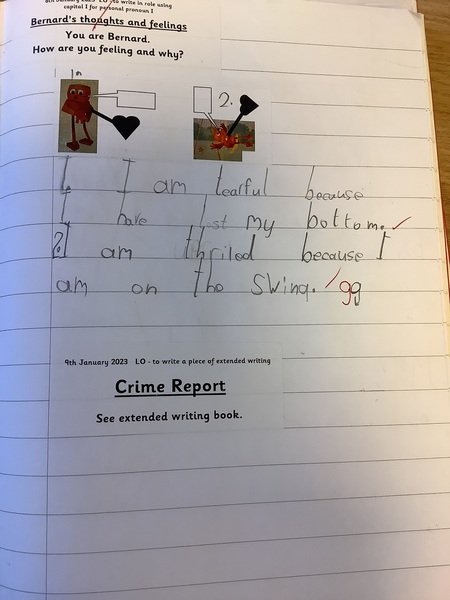 6th January 2023 LO - to write in role using
capital I for personal pronoun I
Bernard's thoughts and feelings
You are Bernard.
How are you feeling and why?
2.
1. I am tearful because
I have lost my bottom.
2. I am thriled because I
am on the swing. gg
9th January 2023 LO - to write a piece of extended writing
Crime Report
See extended writing book.